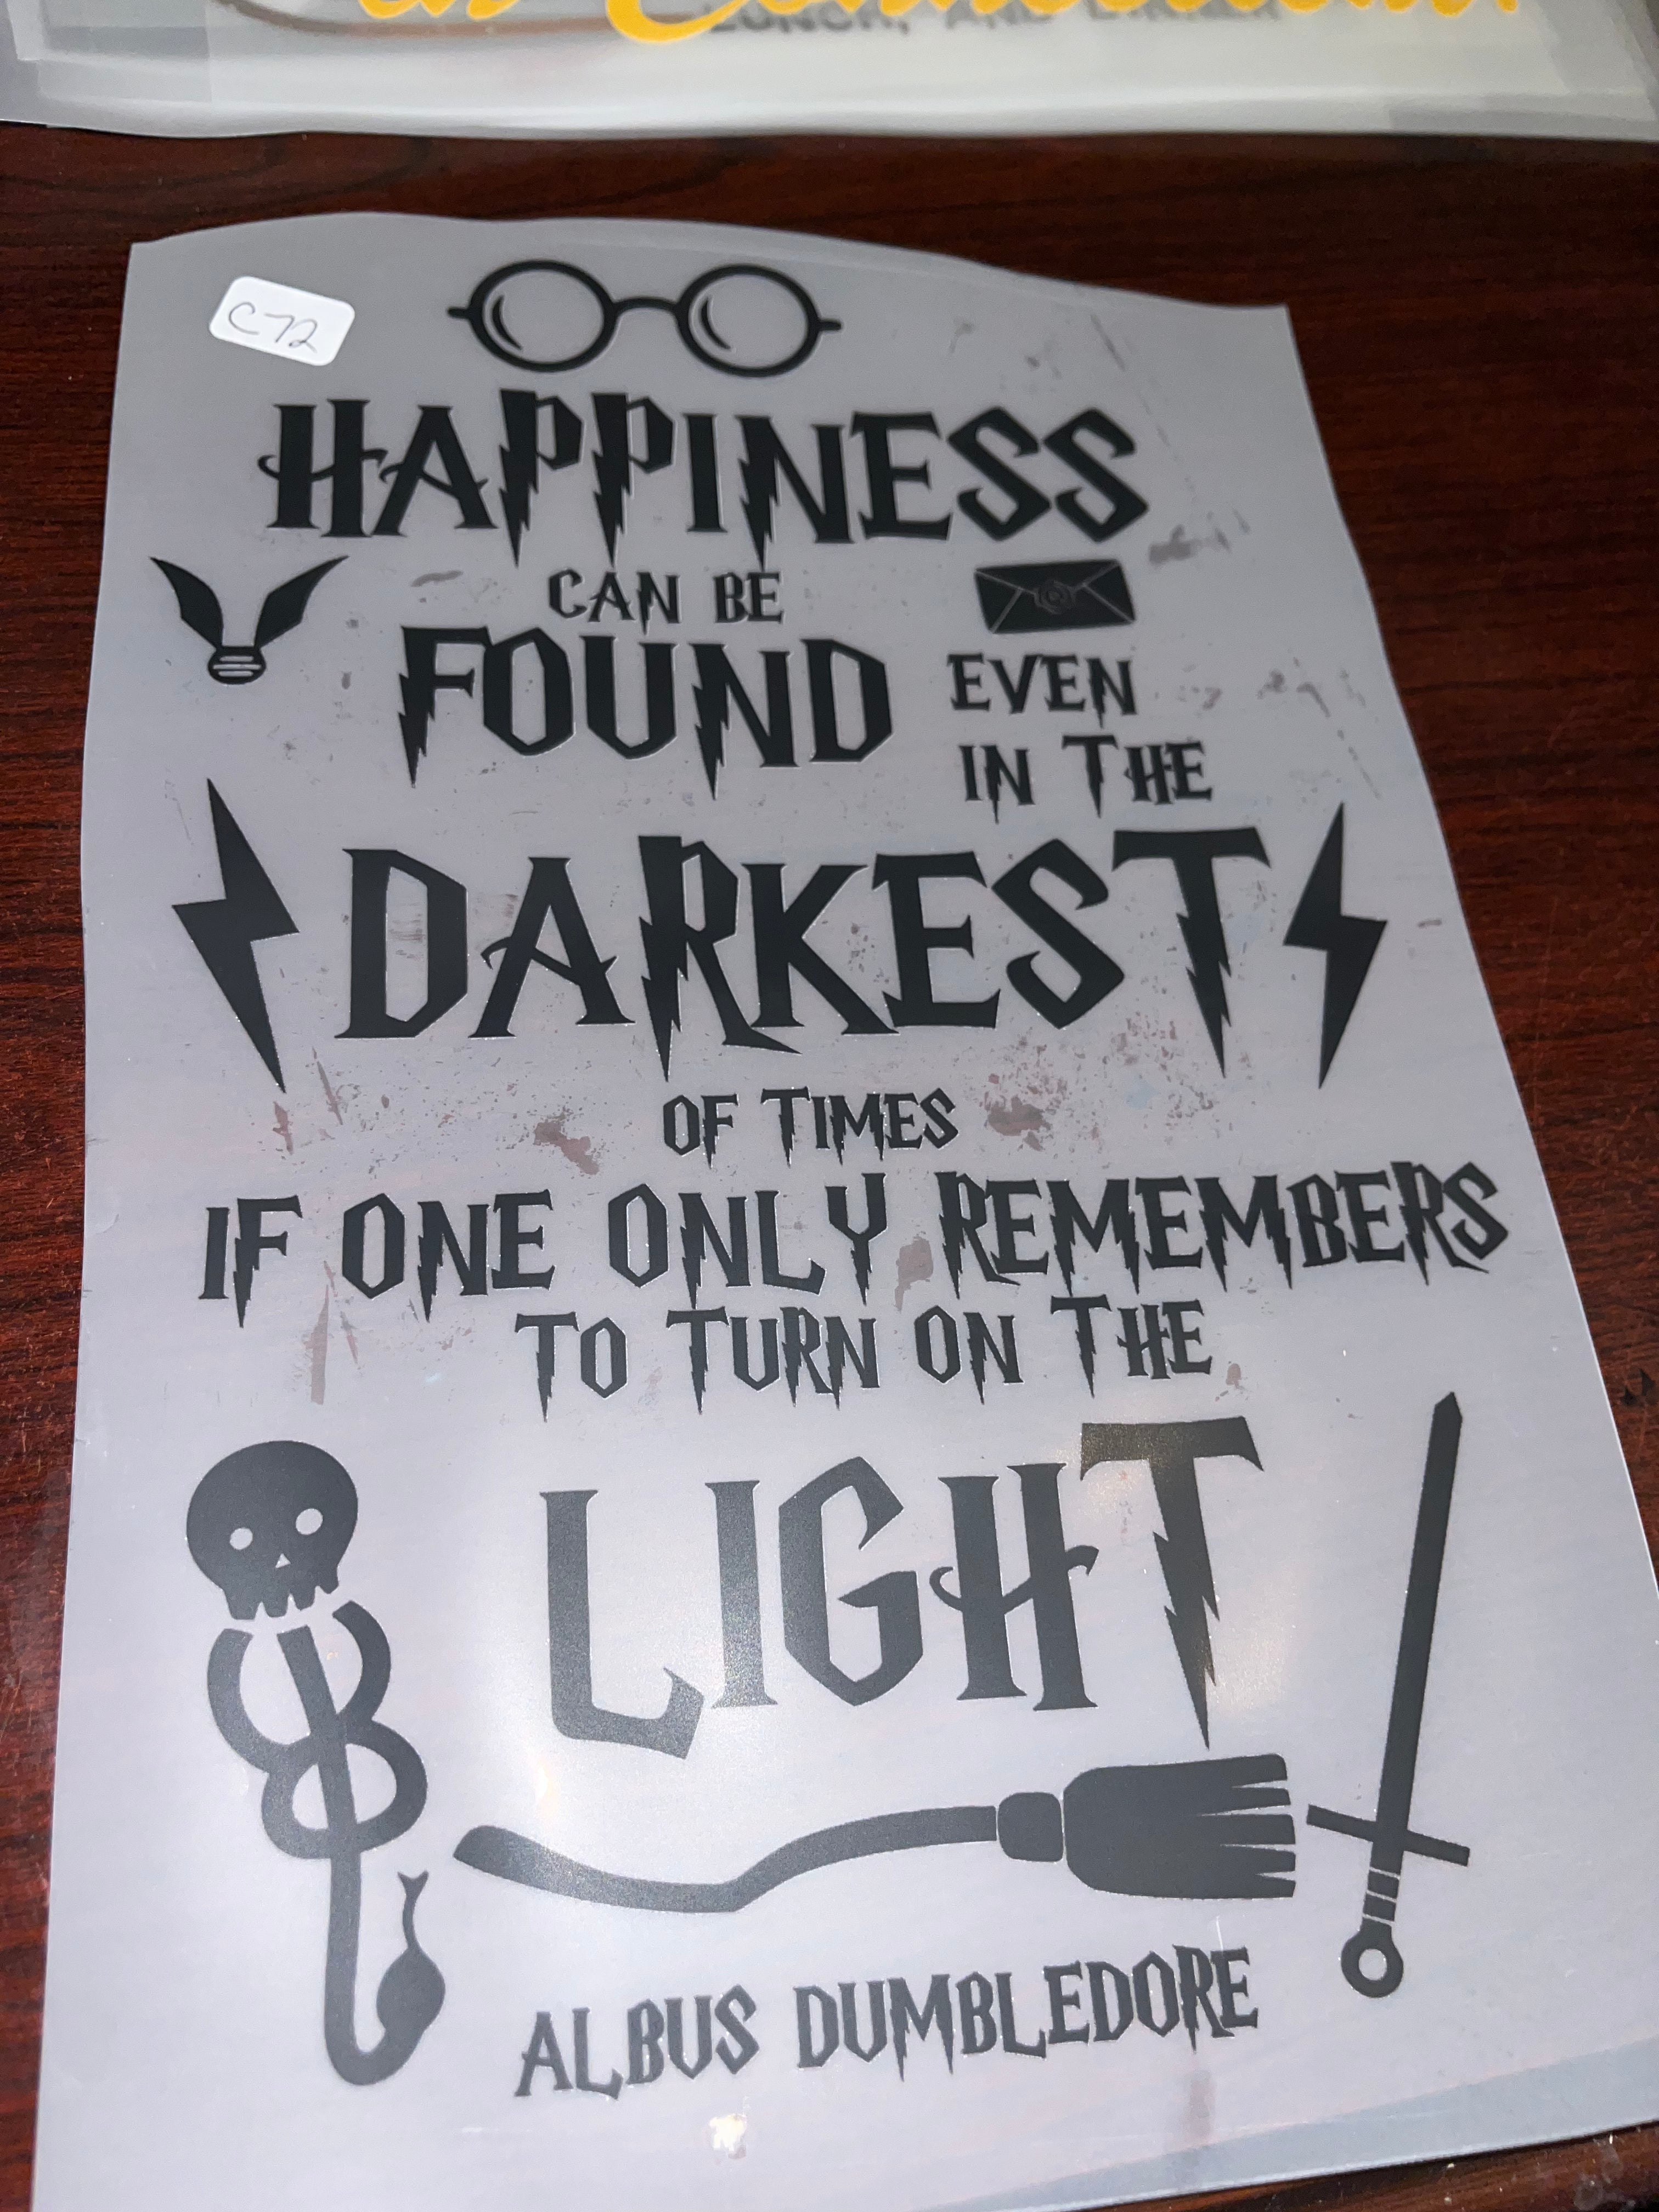 LUNCH, AND DINNER
C72
HAPPINESS
CAN BE
FOUND
EVEN
IN THE
DARKEST
OF TIMES
IF ONE ONLY REMEMBERS
TO TURN ON THE
LIGHT
ALBUS DUMBLEDORE